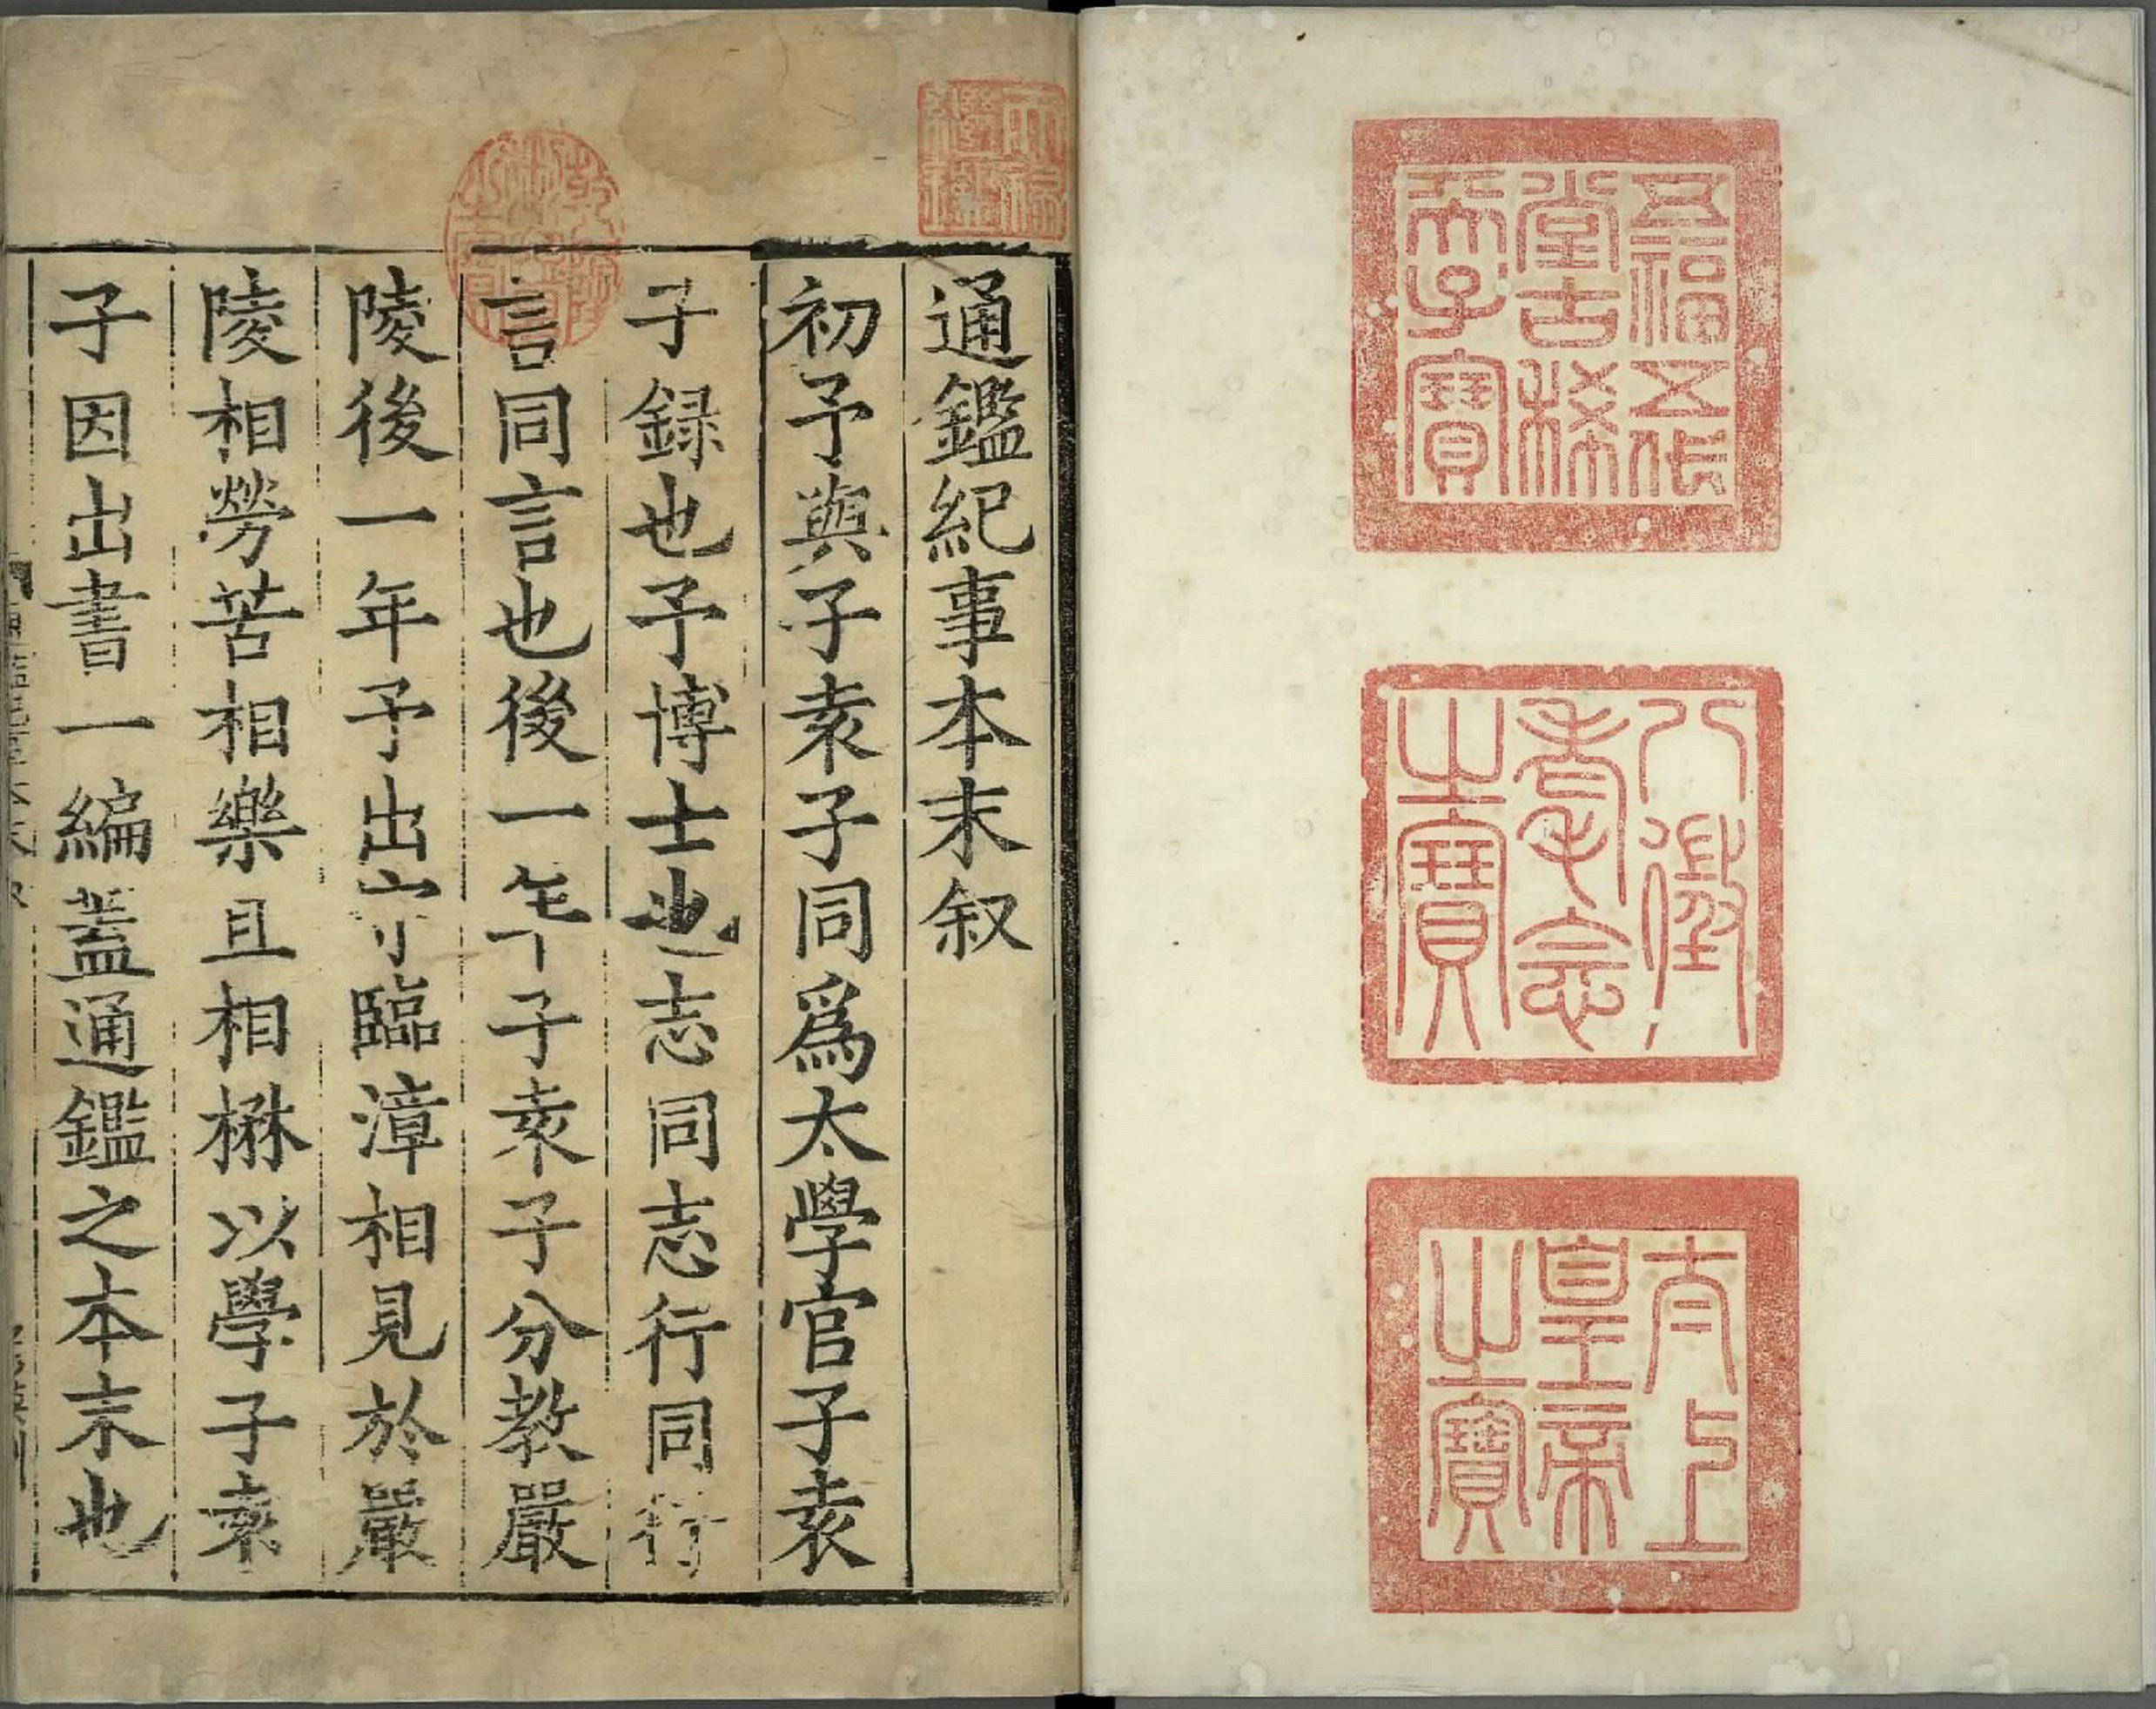 五福五代
堂古稀
天子寶
八徵
耄念
之寶
太上
皇帝
之寶
天祿
繼鑑
乾隆
御覽
之寶
通鑑紀事本末叙
初予與子袁子同爲太學官子袁
子録也予博士也志同志行同行
言同言也後一年予子袁子分教嚴
陵後一年予出守臨漳相見於嚴
陵相勞苦相樂且相楙以學子袁
子因出書一編蓋通鑑之本末也